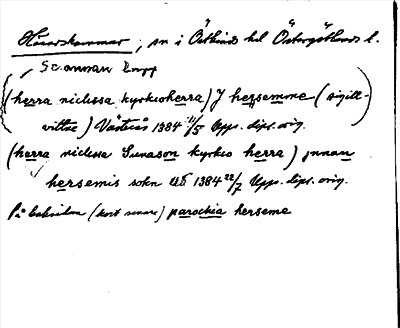 ; sn i Östkinds hd Östergötlands l.
, Se annan
(herra niclissa kyrkioherra) J hersemme (sigill-
vittne) Västerås 1384 11/5 Upps. dipl. orig.
(herra niclissa Sunason kyrkio herra) jnnan
hersemis sokn 1384 22/7 Upps. dipl. orig.
På baksidan (kort senare) parochia herseme